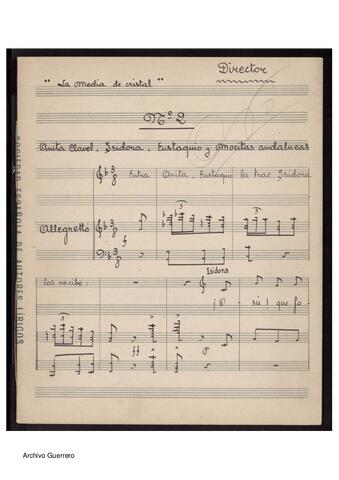 Director
" La media de cristal "
Nº 2
Anita Clavel, Isidora, Eustaquio y Mocitas andaluzas
Entra Anita, Eustaquio la trae Isidora
Allegretto
f
Isidora
los recibe:
¡O - sú! que fo-
ff
p
SOCIEDAD ESPAÑOLA DE AUTORES LÍRICOS
Archivo Guerrero